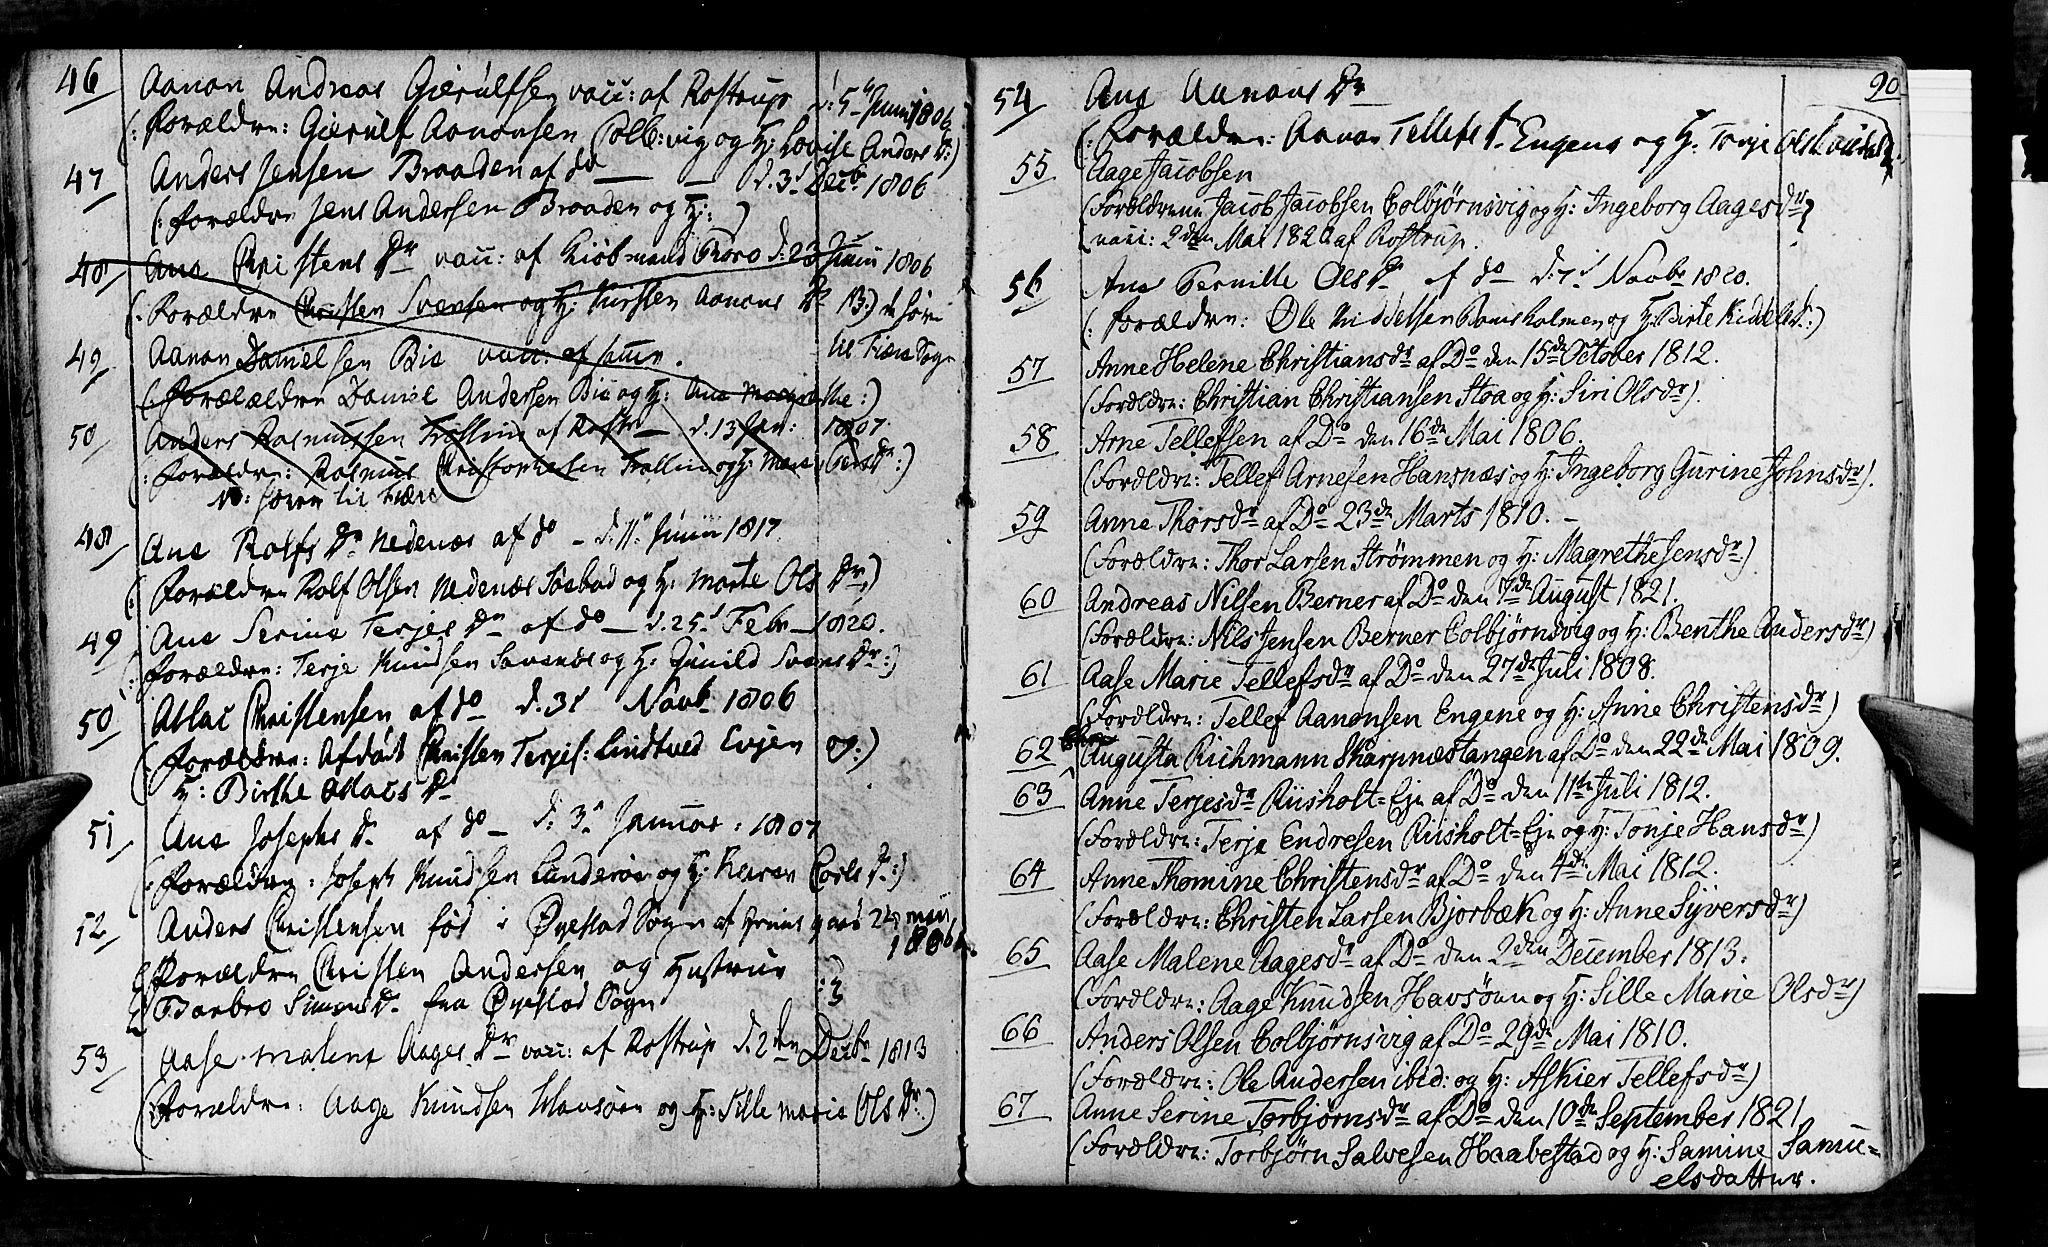 46 Aanon Andreas Gierulfsen vacc: af Rostrup d: 5te Junii 1806
(: Forældre: Gierulf Aanonsen Colb:vig og H: Lovise Anders Dr:)
47 Anders Jensen Braaden af do — d. 3d Decbr 1806
(: Forældre Jens Andersen Braaden og H: )
48 Ane Christens Dr vacc: af Kiöbmand Thoro d: 23 Junii 1806
(: Forældre Christen Svensen og H: Kirsten Aanons Dr B:) de höre
49 Aanon Danielsen Bie vacc: af samme. til Fiære Sogn
(: Forælældre Daniel Andersen Bie og H: Ane Margrethe :)
50 Anders Rasmussen Trolline af Rostr — d. 13 Jan: 1807
(: Forældre: Rasmus Christophersen Trolline og H: Maren Pers Dr:)
NB: hören til Fiære
48 Ane Rolfs Dr Nedenæs af do — d. 11te Junii 1817.
(: Forældre Rolf Olsen Nedenæs Söebod og H: Marte Ols Dr)
49 Ane Serine Terjes Dr af do — d. 25d Febr — 1820.
(: Forældre: Terje Knudsen Savenæs og H: Gunild Svens Dr:)
50 Atlac Christensen af do d. 3d Novbr 1806
(: Forældre: Afdödt Christen Terjes: Lindtved Eyjen og:)
H: Birthe Atlacs Dr
51 Ane Josephs Dr af do — d: 3d Januar: 1807
(: Forældre: Joseph Knudsen Lunderöe og H: Karen Carls Dr:)
52 Anders Christensen föd i Öyestad Sogn af 24 maii
1806
Forældre Christen Andersen og Hustrue
Barbro Simons Dr fra Öyestad Sogn
53 Aase Malene Aages Dr vacc: af Rostrup d. 2den Decbr 1813
(: Forældre: Aage Knudsen Havsöen og H: Sille Marie Ols Dr:)
90
54 Ane Aanons Dr
(: Forældre: Aanon Tellefs Engene og H: Terje Ols
55 Aage Jacobsen
(Forældrene Jacob Jacobsen Colbjørnsvig og H: Ingeborg Aagesdr
vacc: 2den Mai 1820 af Rostrup.
56 Ane Pernille Ols Dr af do d: 7d Novbr 1820.
(: Forældre: Ole Kiddelsen Buusholmen og H: Birte Kiddelsd:)
57 Anne Helene Christiansdr af Do den 15de October 1812.
(Forældre: Christian Christiansen Stoa og H: Siri Olsdr).
58 Arne Tellefsen af Do den 16de Mai 1806.
(Forældre: Tellef Arnesen Hansnæs og H: Ingeborg Gurine Johnsdr).
59 Anne Thorsdr af Do 23de Marts 1810. —
(Forældre: Thor Larsen Strømmen og H: Magrethe Jensdr)
60 Andreas Nilsen Berner af Do den 7de August 1821.
(Forældre: Nils Jensen Berner Colbjørnsvig og H: Benthe Andersdr)
61 Aase Marie Tellefsdr af Do den 27de Juli 1808.
(Forældre: Tellef Aanonsen Engene og H: Anne Christensdr)
62 Augusta Richmann Skarpnæstangen af Do den 22de Mai 1809.
63 Anne Terjesdr Riisholt=Eje af Do den 11te Juli 1812.
(Forældre: Terje Endresen Riisholt=Eje og H: Tonje Hansdr)
64 Anne Thomine Christensdr af Do den 4de Mai 1812.
(Forældre: Christen Larsen Bjorbæk og H: Anne Syversdr)
65 Aase Malene Aagesdr af Do den 2den December 1813.
(Forældre: Aage Knudsen Havsöen og H: Sille Marie Olsdr)
66 Anders Olsen Colbjørnsvig af Do 29de Mai 1810.
(Forældre: Ole Andersen ibid: og H: Askier Tellefsdr)
67 Anne Serine Torbjørnsdr af Do den 10de September 1821
(Forældre: Torbjørn Salvesen Haabestad og H: Samine Samu=
elsdatter.